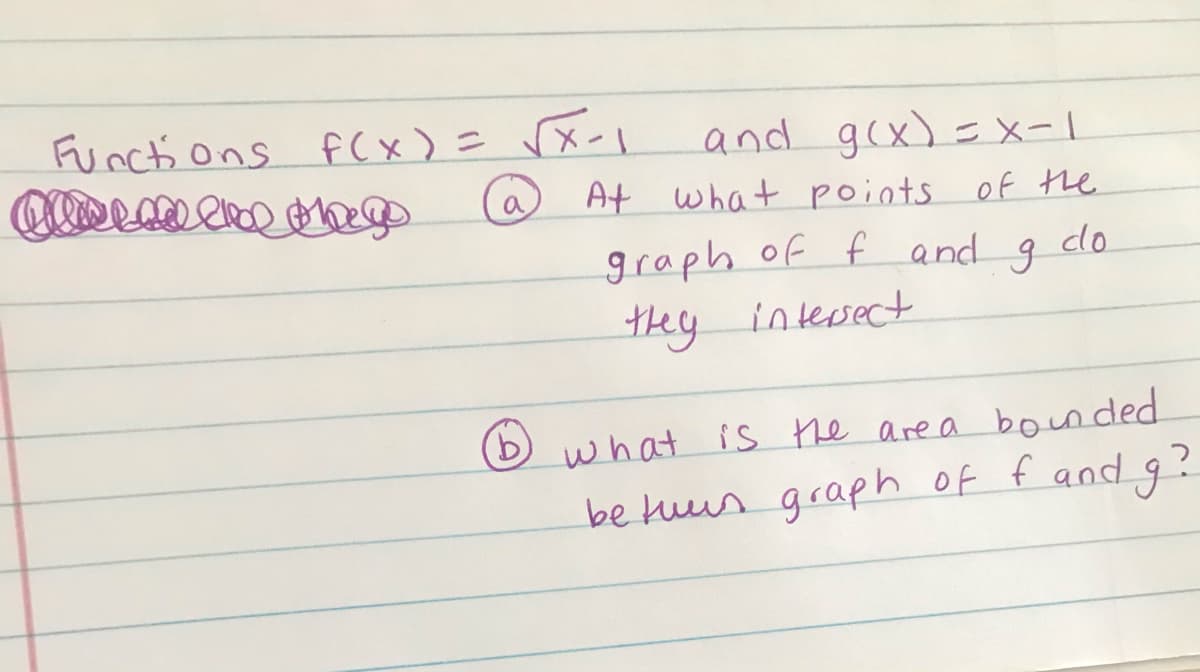 Functions f(x) = √x-1 and g(x) = x-1
(a) At what points of the
graph of f and g do
they intersect
(b) what is the area bounded
between graph of f and g?